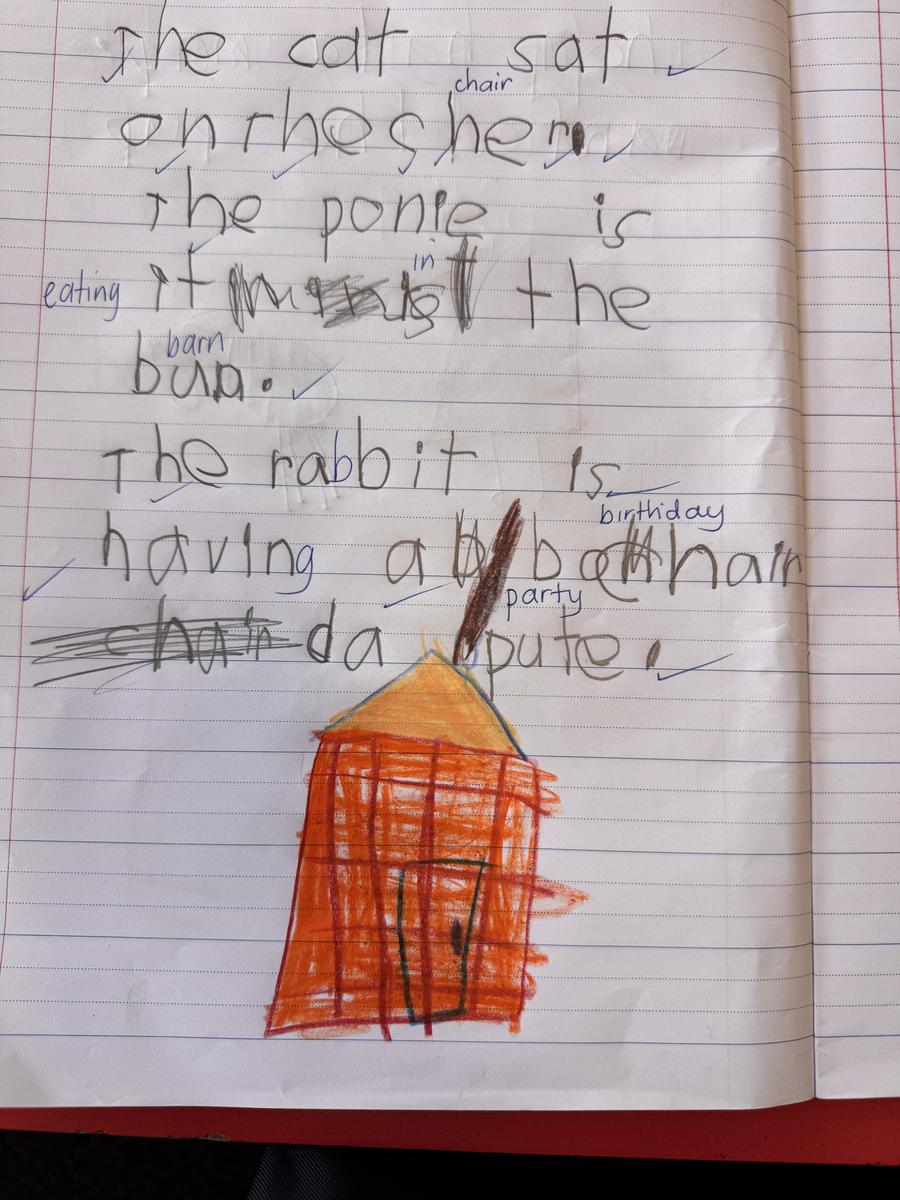 The cat sat
chair
on the sher.
The ponie is
in
eating it the
barn
bun.
The rabbit is
birthday
having a hair
party
da pute.